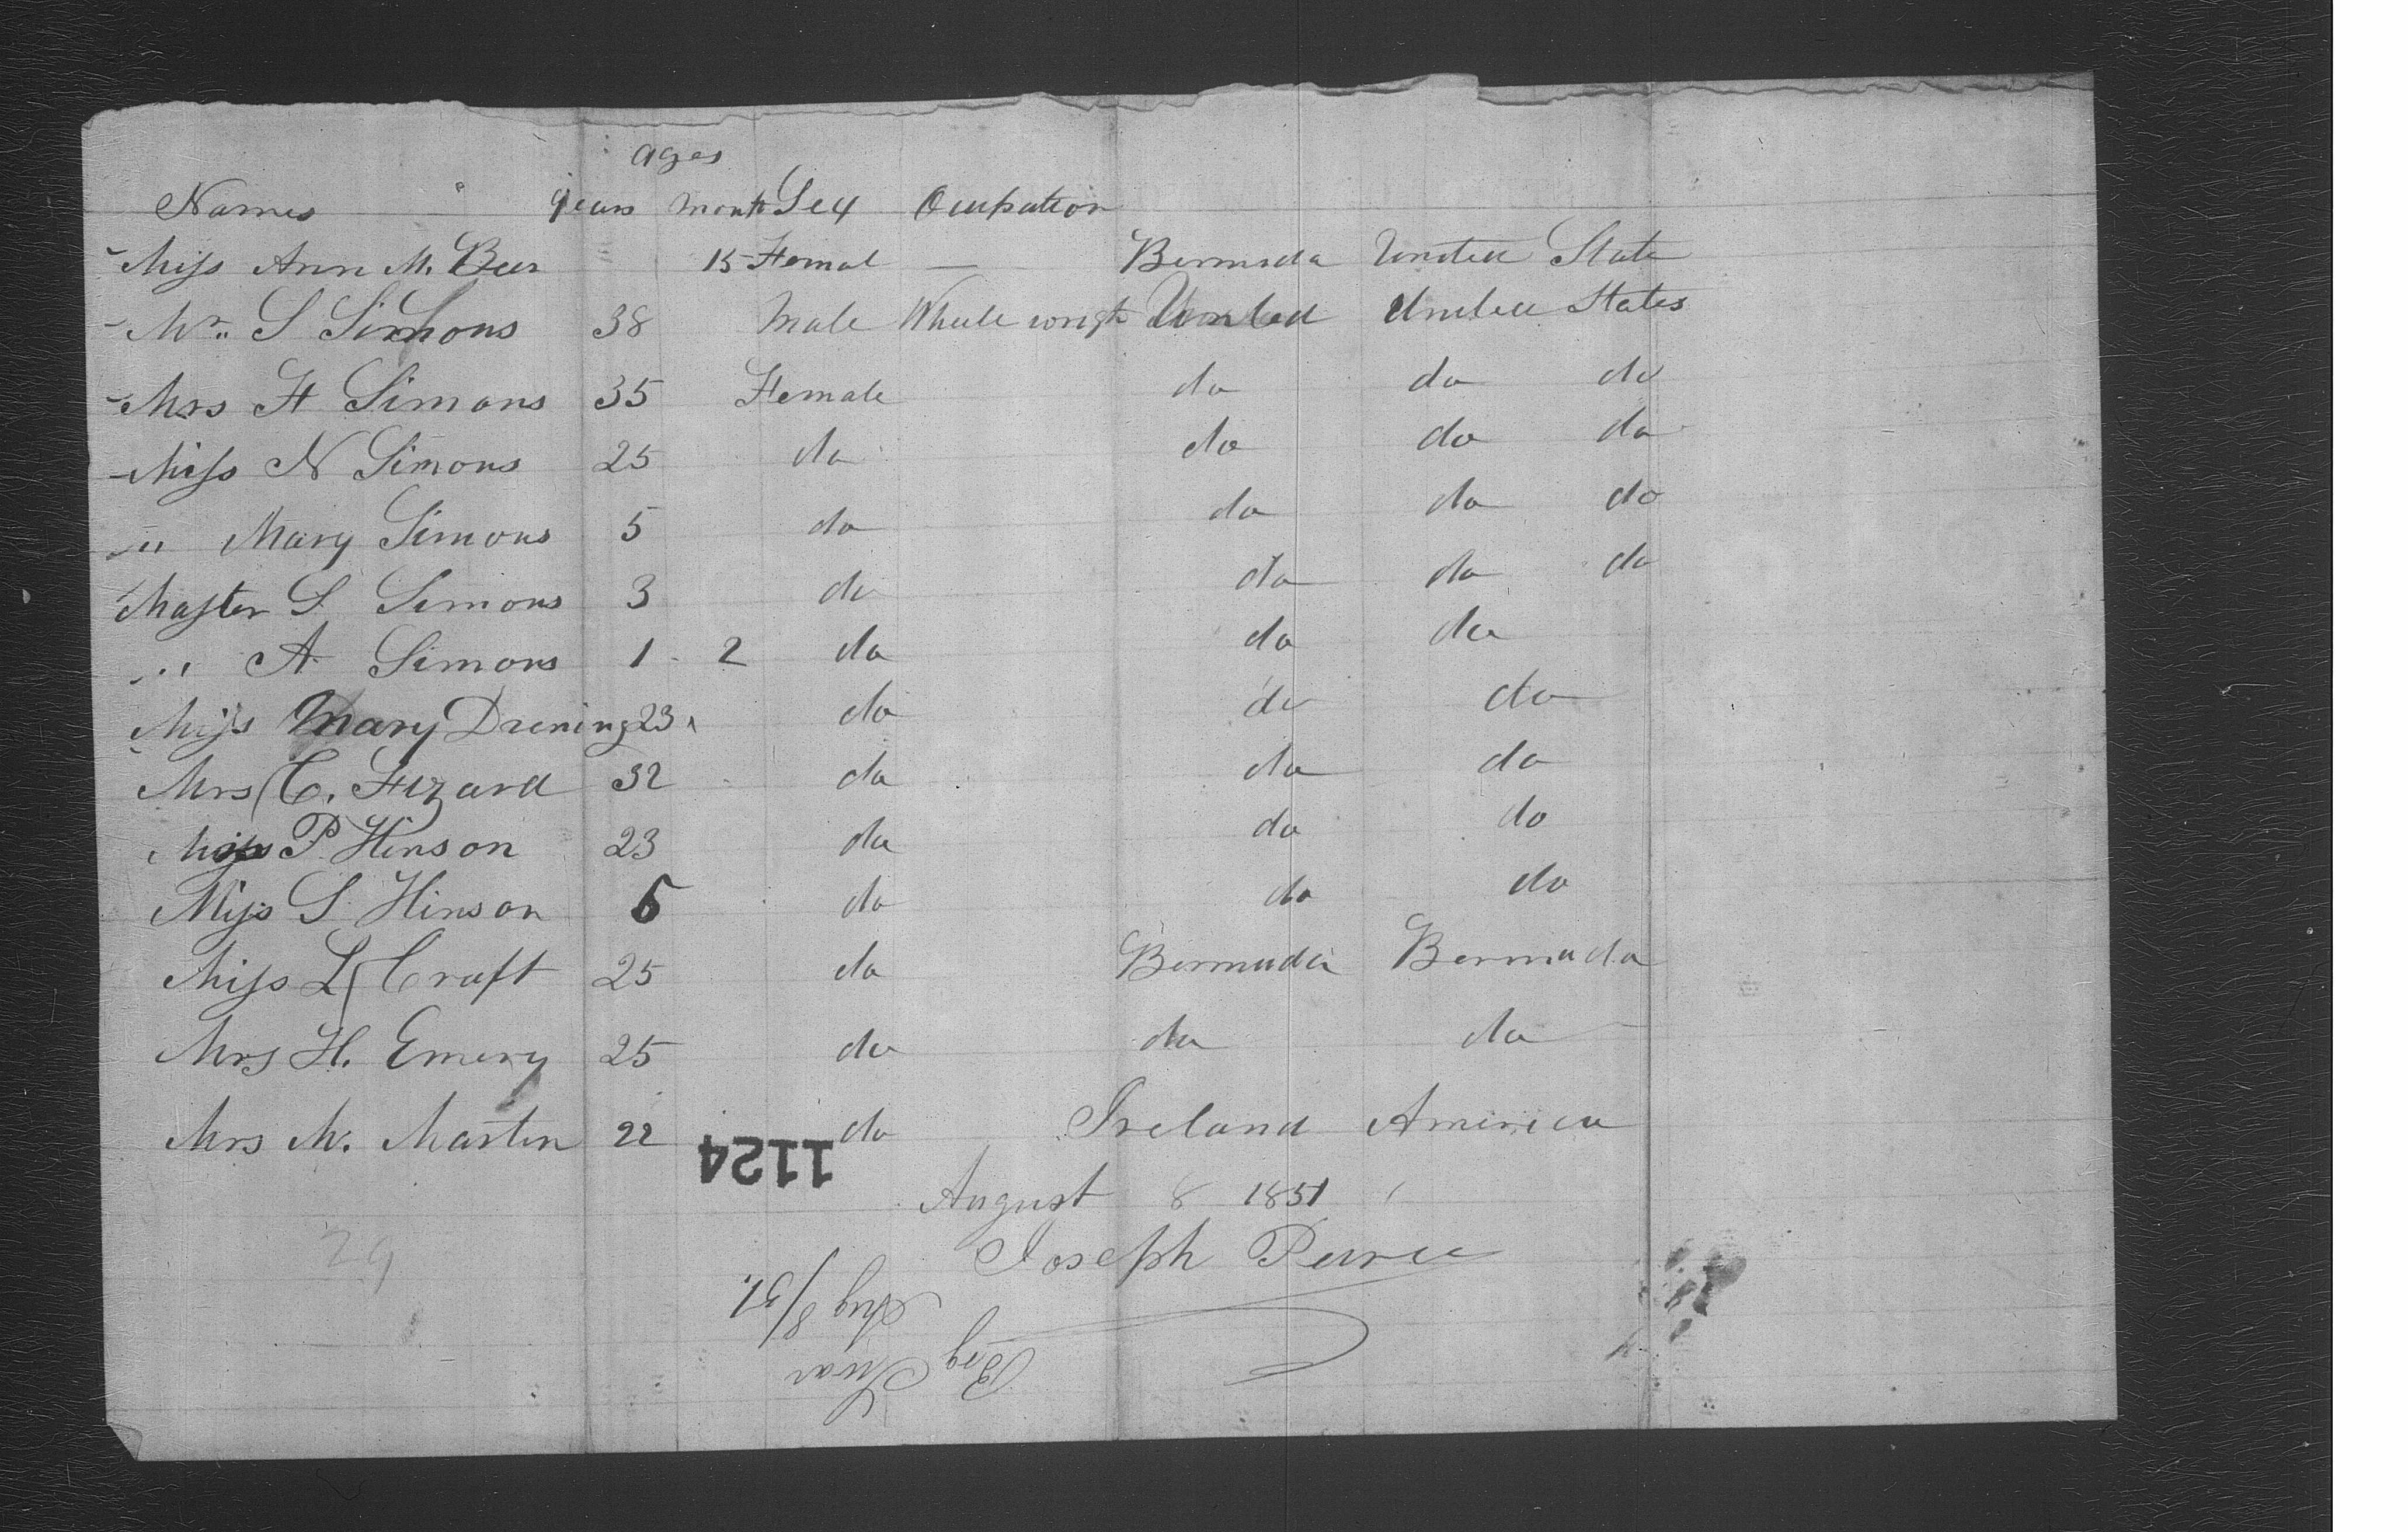 ages
Names years month Sex Ocupation
Miss Ann M. Beer 15 Femal — Bermuda United State
Mr. S Simons 38 Male Wheele wright United United States
Mrs H Simons 35 Female do do do
Miss N Simons 25 do do do do
" Mary Simons 5 do do do do
Master S Simons 3 do do do do
" A Simons 1 - 2 do do do
Miss Mary Drening 23 do do do
Mrs C. Fizard 32 do do do
Miss P Hinson 23 do do do
Miss S Hinson 6 do do do
Miss L Craft 25 do Bermuda Bermuda
Mrs H. Emery 25 do do do
Mrs M. Martin 22 do Ireland America
1124
August 8 1851
Joseph Pearce
29
Brig
Aug 8/51.